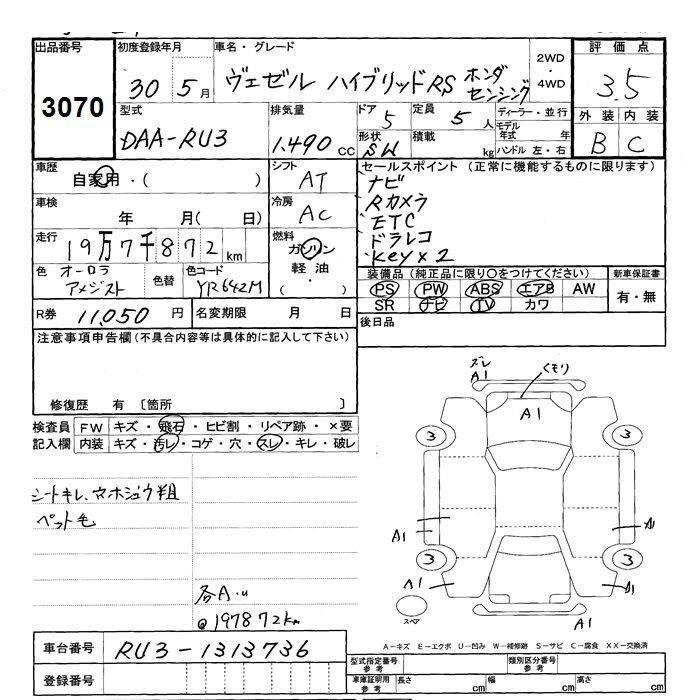 出品番号
3070
初度登録年月
30 5月
車名・グレード
ヴェゼル ハイブリッドRS ホンダ
センシング
2WD
・
4WD
評価点
3.5
型式
DAA-RU3
排気量
1.490 cc
ドア 5
定員 5 人
ディーラー・並行
モデル
年式 年
形状 SW
積載 kg
ハンドル 左・右
外装 内装
B C
車歴
自家用・( )
シフト
AT
セールスポイント (正常に機能するものに限ります)
ナビ
Rカメラ
ETC
ドラレコ
Key×2
車検
年 月( 日)
冷房
AC
走行
19万7千872km
燃料
ガソリン
軽油
( ・ )
色 オーロラ
アメジスト
色替
色コード
YR642M
装備品(純正品に限り○をつけてください)
PS PW ABS エアB AW
SR ナビ TV カワ
新車保証書
有・無
R券 11,050円
名変期限 月 日
後日品
注意事項申告欄(不具合内容等は具体的に記入して下さい)
修復歴 有 〔箇所 〕
検査員
記入欄
FW キズ・飛石・ヒビ割・リペア跡・×要
内装 キズ・汚レ・コゲ・穴・スレ・キレ・破レ
シートキレ、
ペット毛
各A・u
@197872km
ズレ
A1
くもり
A1
3 3
A1 A1
3 3
A1 A1
スペア
A1
A-キズ E-エクボ U-凹み W-補修跡 S-サビ C-腐食 XX-交換済
車台番号
RU3-1313736
登録番号
型式指定番号
参考
類別区分番号
参考
車庫証明用
参考
長さ cm
幅 cm
高さ cm